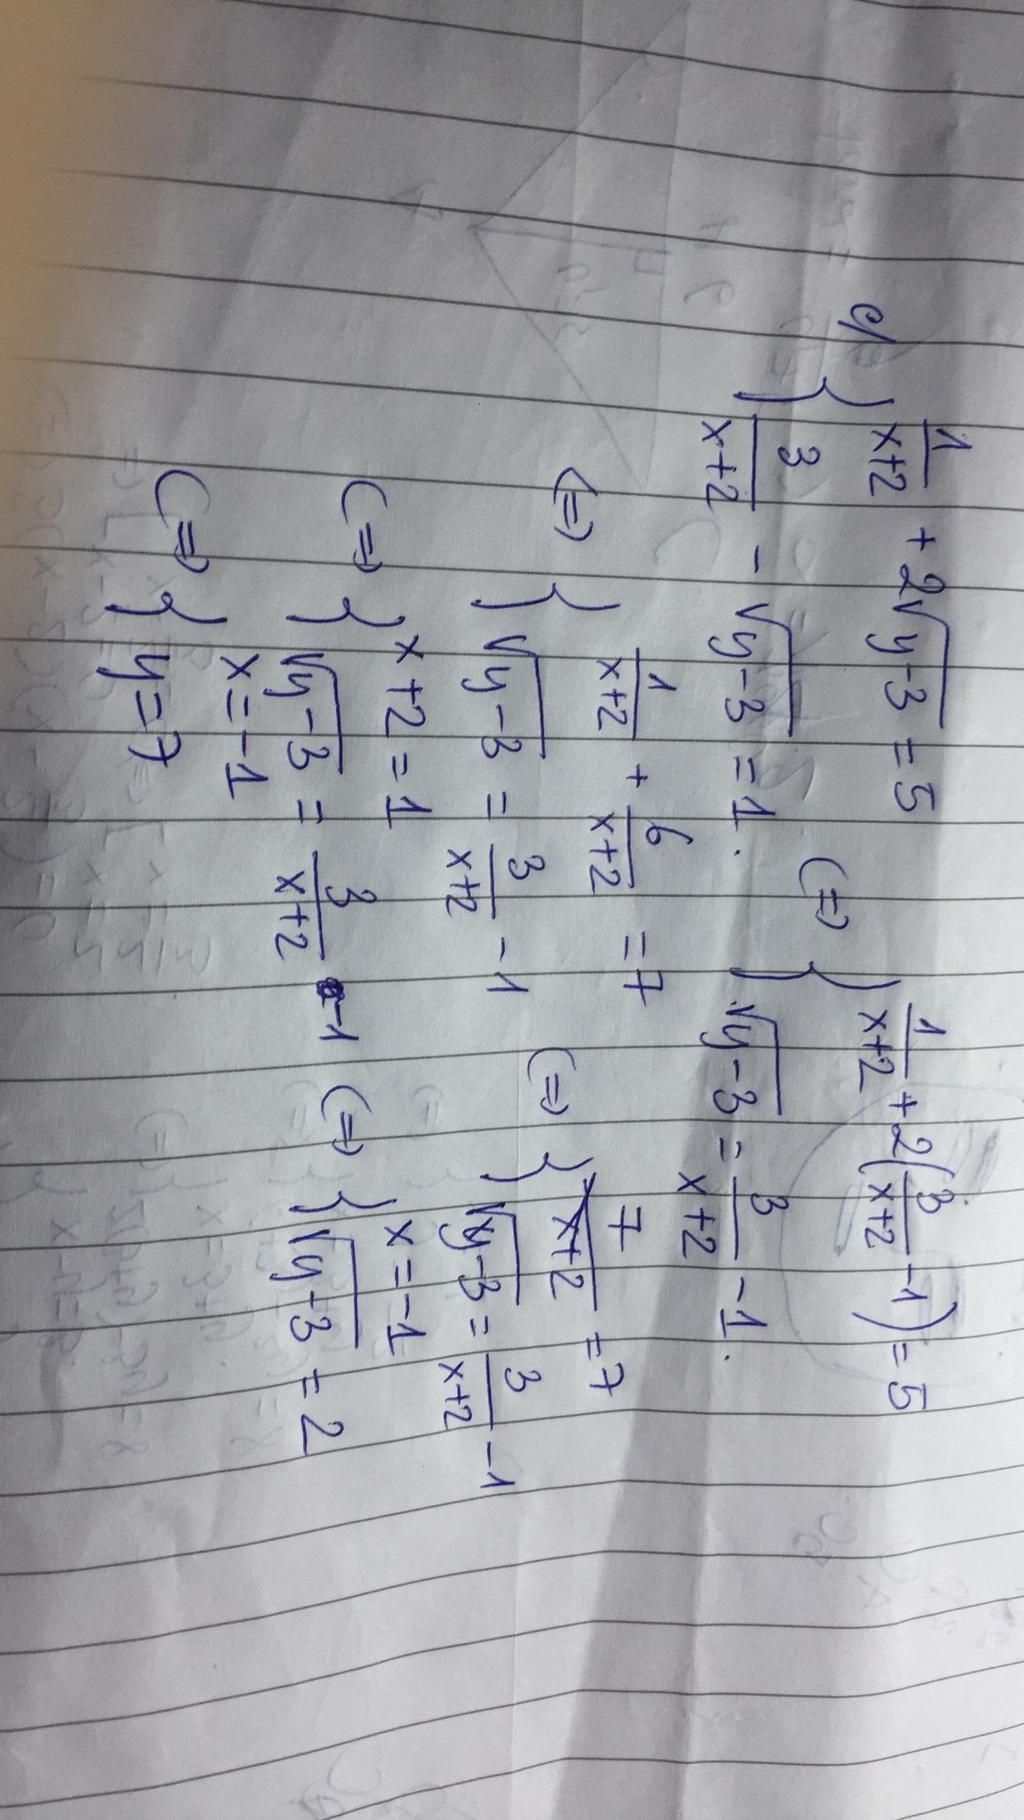 e) { 1/(x+2) + 2√(y-3) = 5
{ 3/(x+2) - √(y-3) = 1.
(=) { 1/(x+2) + 2(3/(x+2) - 1) = 5
{ √(y-3) = 3/(x+2) - 1.
(=) { 1/(x+2) + 6/(x+2) = 7
{ √(y-3) = 3/(x+2) - 1
(=) { 7/(x+2) = 7
{ √(y-3) = 3/(x+2) - 1
(=) { x+2 = 1
{ √(y-3) = 3/(x+2) - 1
(=) { x = -1
{ √(y-3) = 2
(=) { x = -1
{ y = 7